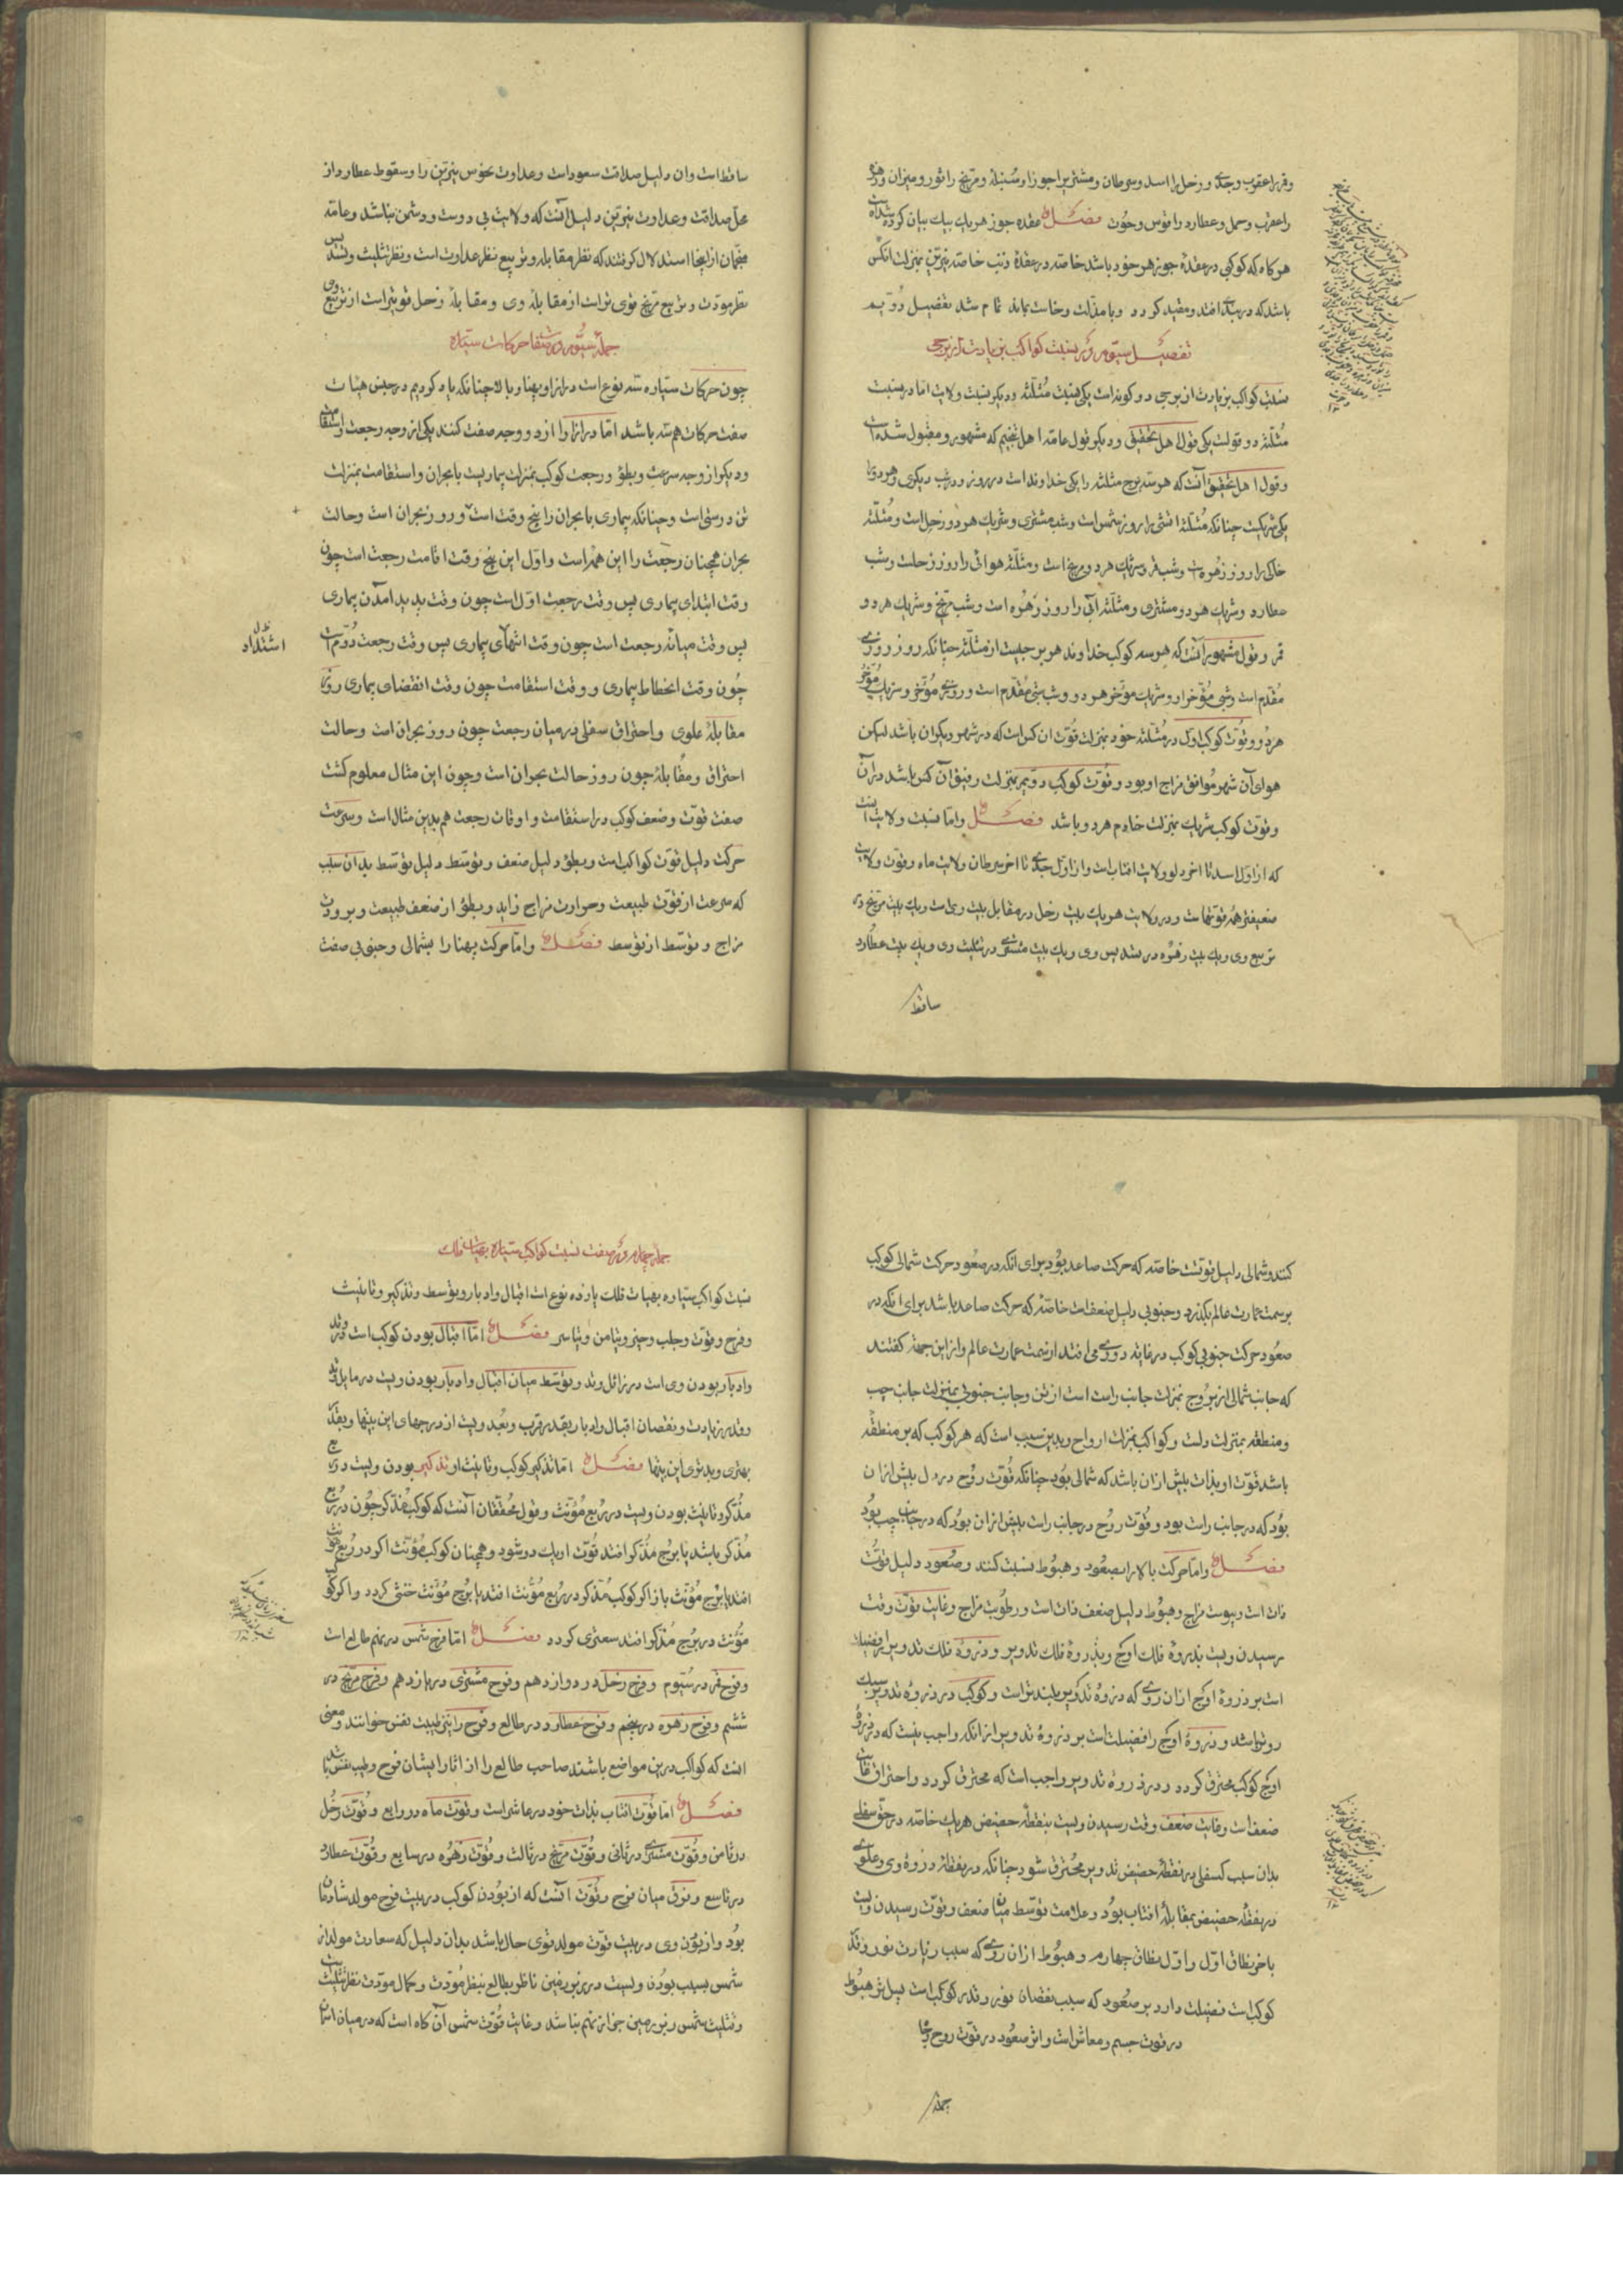 وقمر را عقرب وجدی وزحل را اسد وسرطان ومشتریرا جوزا وسنبله ومریخ را ثور ومیزان وزهره
را عقرب وحمل وعطارد را قوس وحوت فصل عقده جوزهر یک بیک بیان کرده شده است
هر کاه که کوکبی در عقدۀ جوزهر خود باشد خاصه در عقدۀ ذنب خاصه نیرین بمنزلت آنکس
باشد که در بندی افتد ومقید کردد وبا مذلت وخاست بماند تمام شد تفصیل دویم
تفصیل سیوم در نسبت کواکب بزیادت از برجی
نسبت کواکب بزیادت از برجی دو کونه است یکی نسبت مثلثه ودیکر نسبت ولایت اما در نسبت
مثلثه دو قولست یکی قول اهل تحقیق ودیکر قول عامه اهل تنجیم که مشهور ومقبول شده است
وقول اهل تحقیق آنست که هر سه برج مثلثه را یکی خداوند است در روز ودر شب دیکری وهر دو را
یکی شریکست چنانکه مثلثه آتشی را روز شمس است وشب مشتری وشریک هر دو زحل است ومثلثه
خاکی را روز زهره است وشب قمر وشریک هر دو مریخ است ومثلثه هوائی را روز زحلست وشب
عطارد وشریک هر دو مشتری ومثلثه آبی را روز زهره است وشب مریخ وشریک هر دو
قمر وقول مشهور آنست که هر سه کوکب خداوند هر برجیست از مثلثه چنانکه روز روزی
مقدم است وشبی مؤخر او وشریک مؤخر هر دو وشب شبی مقدم است وروزی مؤخر وشریک مؤخر
هر دو وقوت کوکب اول در مثلثه خود بمنزلت قوت آن کس است که در شهر دیکران باشد لیکن
هوای آن شهر موافق مزاج او بود وقوت کوکب دویم بمنزلت رفیق آن کس باشد در آن
وقوت کوکب شریک بمنزلت خادم هر دو باشد فصل واما نسبت ولایت آنست
که از اول اسد تا آخر دلو ولایت آفتاب است واز اول جدی تا آخر سرطان ولایت ماه وقوت ولایت
ضعیفتر همه قوتهاست ودر ولایت هر یک بیت زحل در مقابل بیت وی است ویک بیت مریخ در
تربیع وی ویک بیت زهره در تسدیس وی ویک بیت مشتری در تثلیث وی ویک بیت عطارد
ساقط
ساقط است وآن دلیل صداقت سعود است وعداوت نحوس نیرین را وسقوط عطارد از
محل صداقت وعداوت نیرین دلیل آنست که ولایت بی دوست ودشمن نباشد وعامه
منجمان از اینجا استدلال کرفتند که نظر مقابله وتربیع نظر عداوت است ونظر تثلیث وتسدیس
نظر مودت وتربیع مریخ قوی تر است از مقابله وی ومقابلۀ زحل قویتر است از تربیع وی
جمله سیوم در صفت حرکات ستاره
چون حرکات ستاره سه نوع است دراز او پهنا وبالا چنانکه یاد کردیم در جنس هیات
صفت حرکات هم سه باشد اما دراز را از دو وجه صفت کنند یکی از وجه رجعت واستقامت
ودیکر از وجه سرعت وبطؤ ورجعت کوکب بمنزلت بیماریست با بحران واستقامت بمنزلت
تن درستی است وچنانکه بیماری با بحران را پنج وقت است وروز بحران است وحالت
بحران همچنان رجعت را این همه است واول این پنج وقت اقامت رجعت است چون
وقت ابتدای بیماری پس وقت رجعت اول است چون وقت پدید آمدن بیماری
پس وقت میانه رجعت است چون وقت انتهای بیماری پس وقت رجعت دوم است
اشتداد
چون وقت انحطاط بیماری ووقت استقامت چون وقت انقضای بیماری وروز
مقابلۀ علوی واحتراق سفلی در میان رجعت چون روز بحران است وحالت
احتراق ومقابله چون روز حالت بحران است وچون این مثال معلوم کشت
صفت قوت وضعف کوکب در استقامت واوقات رجعت هم بدین مثال است وسرعت
حرکت دلیل قوت کواکب است وبطؤ دلیل ضعف وتوسط دلیل توسط بدان سبب
که سرعت از قوت طبیعت وحرارت مزاج زاید وبطؤ از ضعف طبیعت وبرودت
مزاج وتوسط از توسط فصل واما حرکت پهنا را بشمالی وجنوبی صفت
کنند وشمالی دلیل قوتست خاصه که حرکت صاعد بود برای آنکه در صعود حرکت شمالی کوکب
بر سمت عمارت عالم بکذرد وجنوبی دلیل ضعف است خاصه که حرکت صاعد باشد برای آنکه در
صعود حرکت جنوبی کوکب در غایت دوری می افتد از سمت عمارت عالم واز این جهة کفتند
که جانب شمالی از بروج بمنزلت جانب راست است از تن وجانب جنوبی بمنزلت جانب چپ
ومنطقه بمنزلت دلست وکواکب بمنزلت ارواح وبدین سبب است که هر کوکب که بر منطقه
باشد قوت او بذات بیش از آن باشد که شمالی بود چنانکه قوت روح در دل بیش از آن
بود که در جانب راست بود وقوت روح در جانب راست بیش از آن بود که در جانب چپ بود
فصل واما حرکت بالا را بصعود وهبوط نسبت کنند وصعود دلیل قوت
ذات است ویبوست مزاج وهبوط دلیل ضعف ذات است ورطوبت مزاج وغایت قوت وقت
رسیدن ویست بذروۀ فلک اوج وبذروۀ فلک تدویر وذروۀ فلک تدویر را فضیلت
است بر ذروۀ اوج از آن روی که ذروۀ تدویر بلندتر است وکوکب در ذروۀ تدویر سبک
روتر باشد وذروۀ اوج را فضیلت است بر ذروۀ تدویر از آنکه واجب نیست که در ذروۀ
اوج کوکب محترق کردد ودر ذروۀ تدویر واجب است که محترق کردد واحتراق غایت
ضعف است وغایت ضعف وقت رسیدن ویست بنقطه حضیض هر یک خاصه در حق سفلی
بدان سبب که سفلی در نقطۀ حضیض تدویر محترق شود چنانکه در نقطۀ ذروۀ وی وعلوی
در نقطۀ حضیض بمقابلۀ آفتاب بود وعلامت توسط میان ضعف وقوت رسیدن ویست
بآخر نطاق اول واول نطاق چهارم وهبوط از آن روی که سبب زیادت نور وقدر
کوکب است فضیلت دارد بر صعود که سبب نقصان نور وقدر کوکب است پس اثر هبوط
در قوت جسم ومعاش است واثر صعود در قوت روح وجاه
جمله
جمله چهارم در صفت نسبت کواکب ستاره بهیات فلک
نسبت کواکب ستاره بهیات فلک یازده نوع است اقبال وادبار وتوسط وتذکیر وتانیث
وفرح وقوت وحلب وحیز وتیامن وتیاسر فصل اما اقبال بودن کوکب است در وتد
وادبار بودن وی است در زائل وتد وتوسط میان اقبال وادبار بودن ویست در مایل وتد
وقدر زیادت ونقصان اقبال وادبار بقدر قرب وبعد ویست از درجهای این بیتها وبقدر
بهتری وبدتری این بیتها فصل اما تذکیر کوکب وتانیث او تذکیر بودن ویست در ربع
مذکر وتانیث بودن ویست در ربع مؤنث وقول محققان آنست که کوکب مذکر چون در ربع
مذکر باشد یا برج مذکر افتد قوت او یک دو شود وهمچنان کوکب مؤنث اکر در ربع مؤنث
افتد یا برج مؤنث باز اکر کوکب مذکر در ربع مؤنث افتد یا برج مؤنث خنثی کردد واکر کوکب
مؤنث در برج مذکر افتد سعتری کردد فصل اما فرح شمس در نهم طالع است
وفرح قمر در سیوم وفرح زحل در دوازدهم وفرح مشتری در یازدهم وفرح مریخ در
ششم وفرح زهره در پنجم وفرح عطارد در طالع وفرح را بتن طیبت نفس خوانند ومعنی
آنست که کواکب در این مواضع باشند صاحب طالع را از آثار ایشان فرح وطیب نفس باشد
فصل اما قوت آفتاب بذات خود در عاشر است وقوت ماه در رابع وقوت زحل
در ثامن وقوت مشتری در ثانی وقوت مریخ در ثالث وقوت زهره در سابع وقوت عطارد
در تاسع وفرق میان فرح وقوت آنست که از بودن کوکب در بیت فرح مولد شادمان
بود واز بودن وی در بیت قوت مولد قوی حال باشد بدان دلیل که سعادت مولد از
شمس بسبب بودن ویست در زبر زمین ناظر بطالع بنظر مودت وکمال مودت نظر تثلیث
وتثلیث شمس زبر زمین جز از نهم نباشد وغایت قوت شمس آن کاه است که در میان آسمان